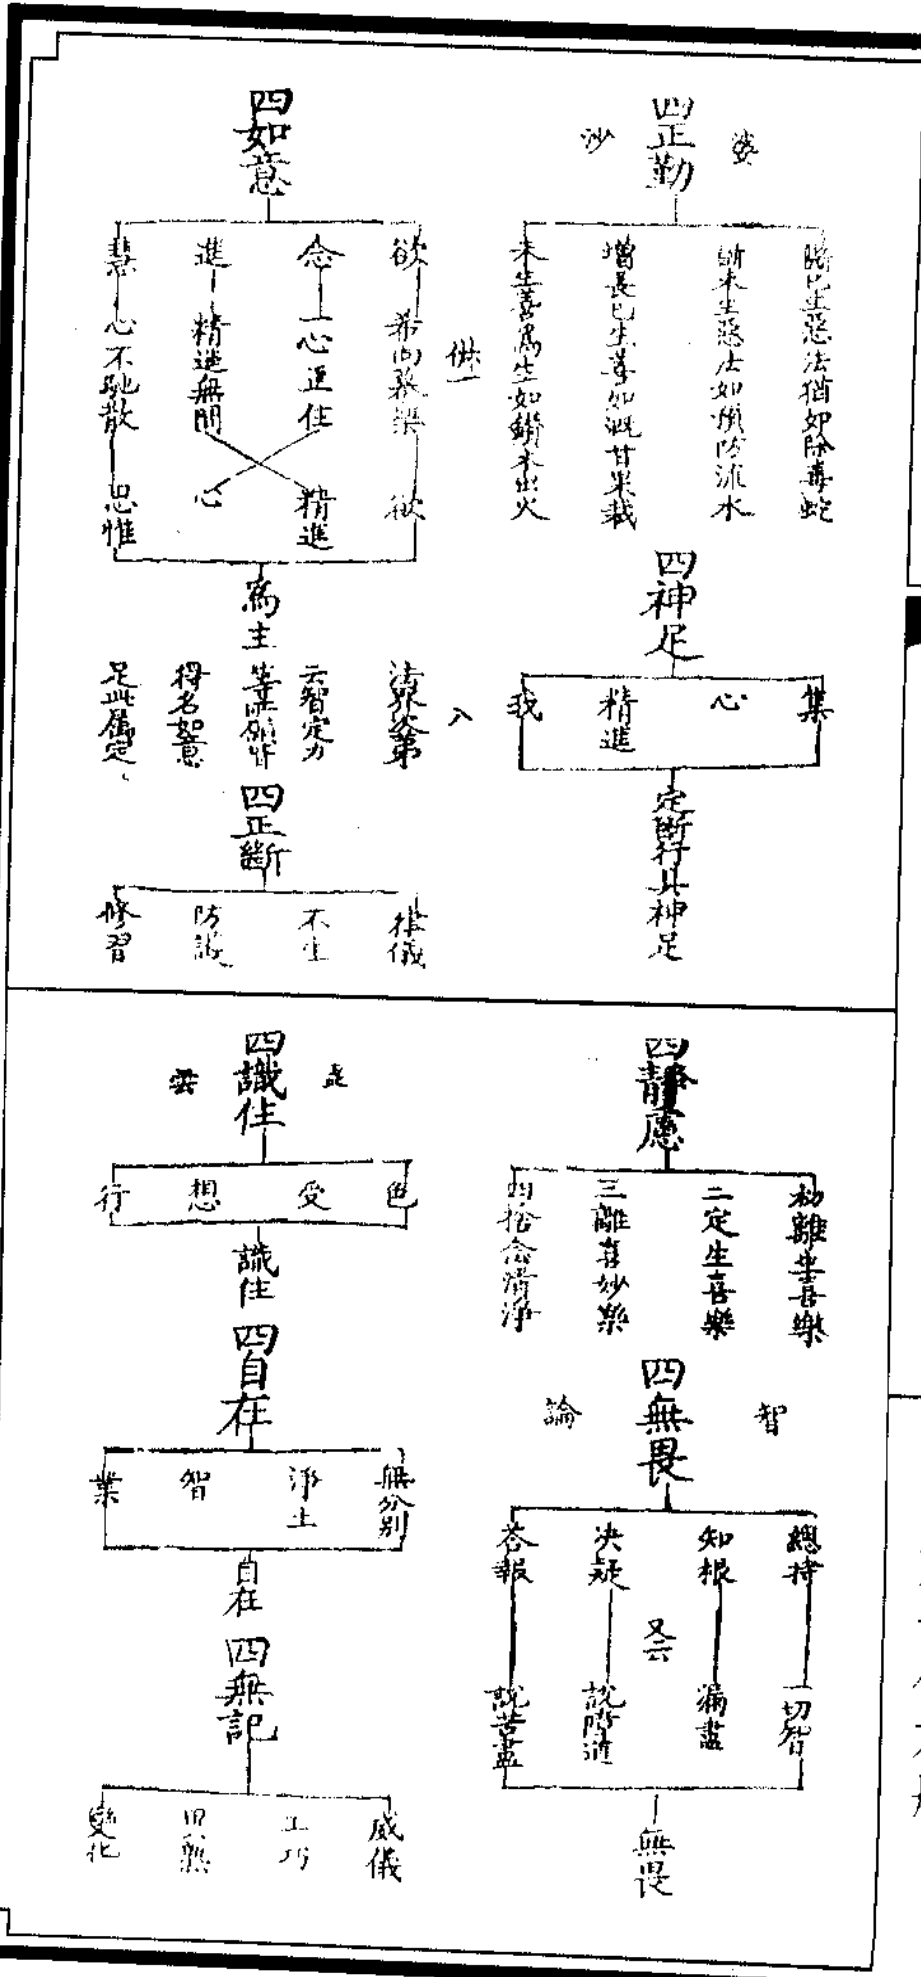 四正勤
婆
沙
斷已生惡法猶如除毒蛇
斷未生惡法如預防流水
增長已生善如溉甘果栽
未生善為生如鑽木出火
四神足
集
心
精進
我
定斷行具神足
四如意
欲
希向慕樂
欲
念
一心正住
精進
進
精進無間
心
慧
心不馳散
思惟
為主
法界次第
云智定力
等所願皆
得名如意
足此屬定
入
四正斷
律儀
不生
防護
修習
四靜慮
初離生喜樂
二定生喜樂
三離喜妙樂
四捨念清淨
四無畏
智
論
總持
知根
決疑
答報
又云
一切智
漏盡
說障道
說苦盡
無畏
四識住
毘
曇
色
受
想
行
識住
四自在
無分別
淨土
智
業
自在
四無記
威儀
工巧
異熟
變化